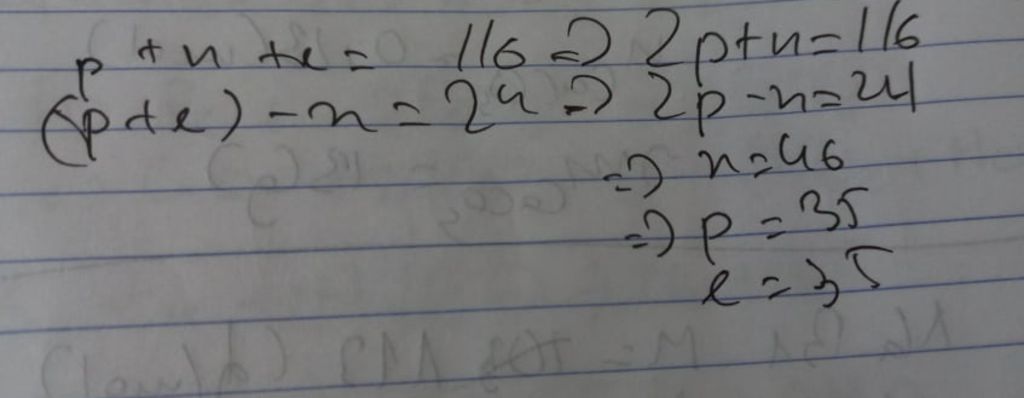 p + n + e = 116 => 2p + n = 116
(p + e) - n = 24 => 2p - n = 24
=> n = 46
=> p = 35
e = 35